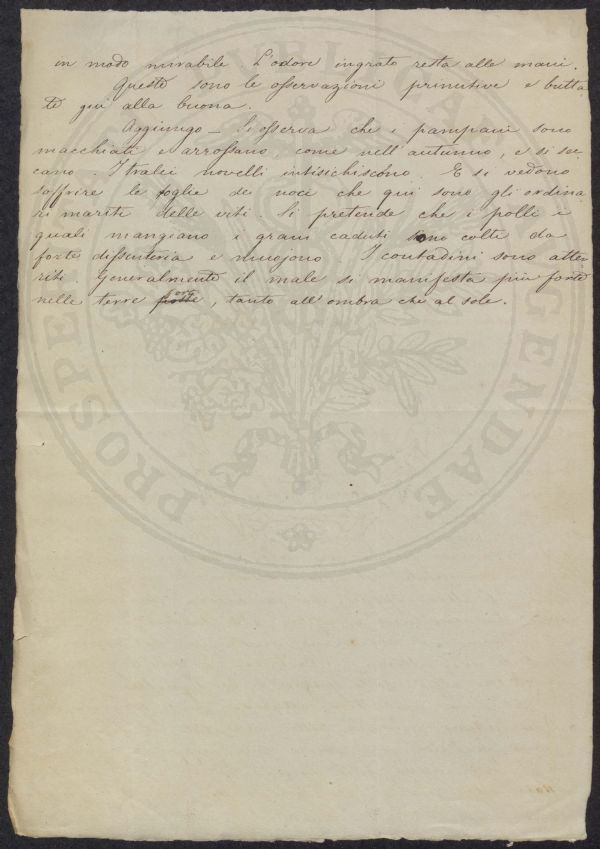 in modo mirabile. L'odore ingrato resta alle mani.
Queste sono le osservazioni primitive e butta-
te giù alla buona.
Aggiungo_ Si osserva che i pampani sono
macchiati e arrossano come nell'autunno, e si sec-
cano. I tralci novelli intisichiscono. E si vedono
soffrire le foglie de' noci che qui sono gli ordina-
ri mariti delle viti. Si pretende che i polli i
quali mangiano i grani caduti sono colti da
forte dissenteria e muojono. I contadini sono atter-
riti. Generalmente il male si manifesta più forte
nelle terre forti, tanto all'ombra che al sole.
PROSPE VELL AUGENDAE